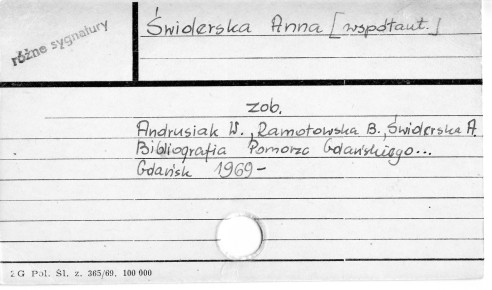 różne sygnatury
Świderska Anna [współaut.]
zob.
Andrusiak W., Ramotowska B., Świderska A.
Bibliografia Pomorza Gdańskiego...
Gdańsk 1969-
2 G Pol. Śl. z. 365/69. 100 000